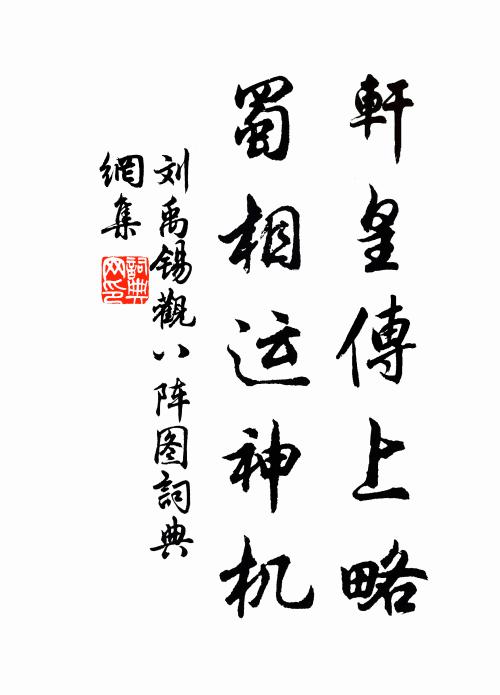 軒皇傳上略
蜀相运神机
刘禹锡觀八阵图詞典
網集
詞典
网印